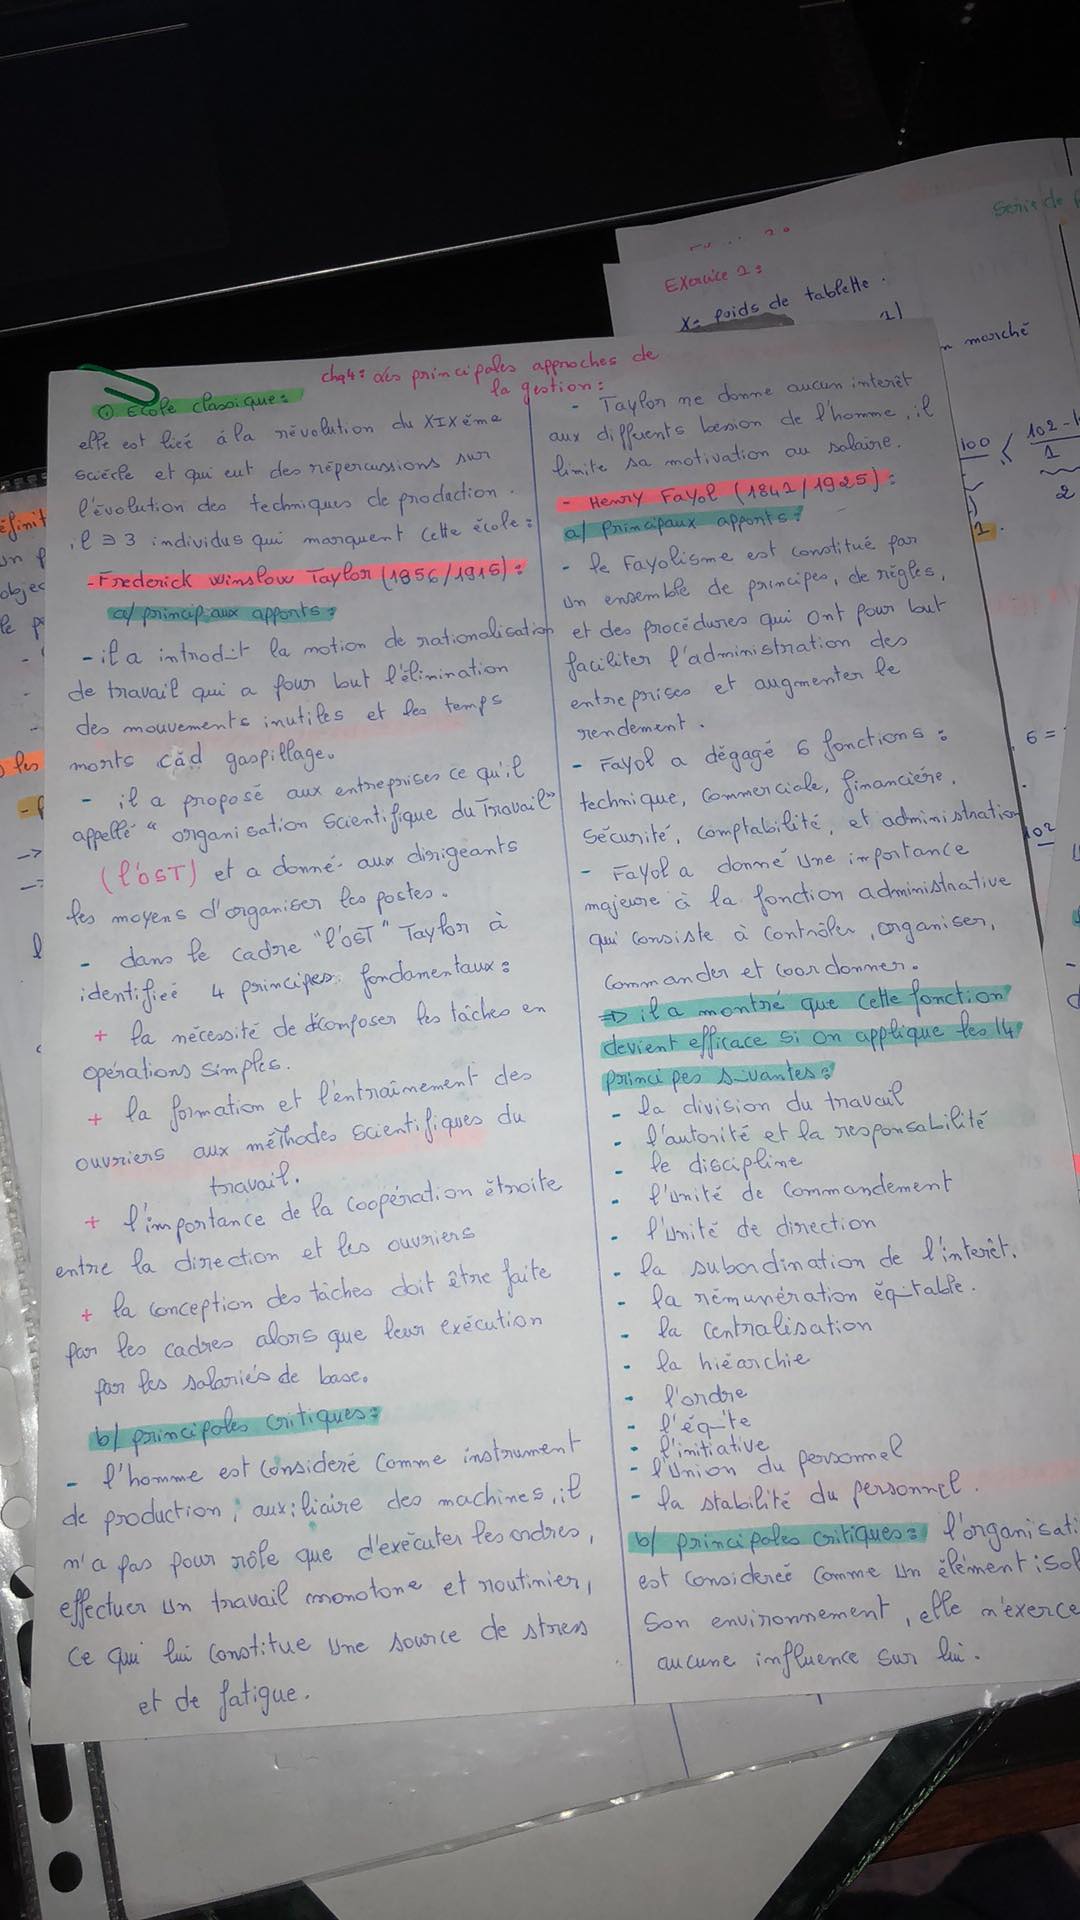 chap4: Les principales approches de
la gestion:
① Ecole classique:
elle est liée à la révolution du XIXème
sciècle et qui eut des répercussions sur
l'évolution des techniques de production.
il ∃ 3 individus qui marquent cette école:
- Frederick Winslow Taylor (1856/1915):
a/ principaux apports:
- il a introduit la notion de rationalisation
de travail qui a pour but l'élimination
des mouvements inutiles et les temps
morts càd gaspillage.
- il a proposé aux entreprises ce qu'il
appellé "organisation scientifique du Travail"
(l'OST) et a donné aux dirigeants
les moyens d'organiser les postes.
- dans le cadre "l'OST" Taylor à
identifieé 4 principes fondamentaux:
+ la nécessité de décomposer les tâches en
opérations simples.
+ la formation et l'entraînement des
ouvriers aux méthodes scientifiques du
travail.
+ l'importance de la coopération étroite
entre la direction et les ouvriers
+ la conception des tâches doit être faite
par les cadres alors que leur exécution
par les salariés de base.
b/ principales critiques:
- l'homme est consideré comme instrument
de production; auxiliaire des machines, il
n'a pas pour rôle que d'exécuter les ordres,
effectuer un travail monotone et routinier,
ce qui lui constitue une source de stress
et de fatigue.
- Taylor ne donne aucun interêt
aux différents besion de l'homme, il
limite sa motivation au salaire.
- Henry Fayol (1841/1925):
a/ principaux apports:
- le Fayolisme est constitué par
un ensemble de principes, de règles,
et des procédures qui ont pour but
faciliter l'administration des
entreprises et augmenter le
rendement.
- Fayol a dégagé 6 fonctions:
technique, commerciale, financière,
sécurité, comptabilité, et administration
- Fayol a donné une importance
majeure à la fonction administrative
qui consiste à contrôler, organiser,
commander et coordonner.
⇒ il a montré que cette fonction
devient efficace si on applique les 14
principes suivantes:
- la division du travail
- l'autorité et la responsabilité
- le discipline
- l'unité de commandement
- l'unité de direction
- la subordination de l'interêt.
- la rémunération équitable.
- la centralisation
- la hiéarchie
- l'ordre
- l'équité
- l'initiative
- l'union du personnel
- la stabilité du personnel.
b/ principales critiques: l'organisati
est considereé comme un élément isol
son environnement, elle n'exerce
aucune influence sur lui.
Exercice 1:
X= poids de tablette.
Serie de
marché
100 < 102 -
1
2
6 =
102
éfinit
un
objec
le p
les